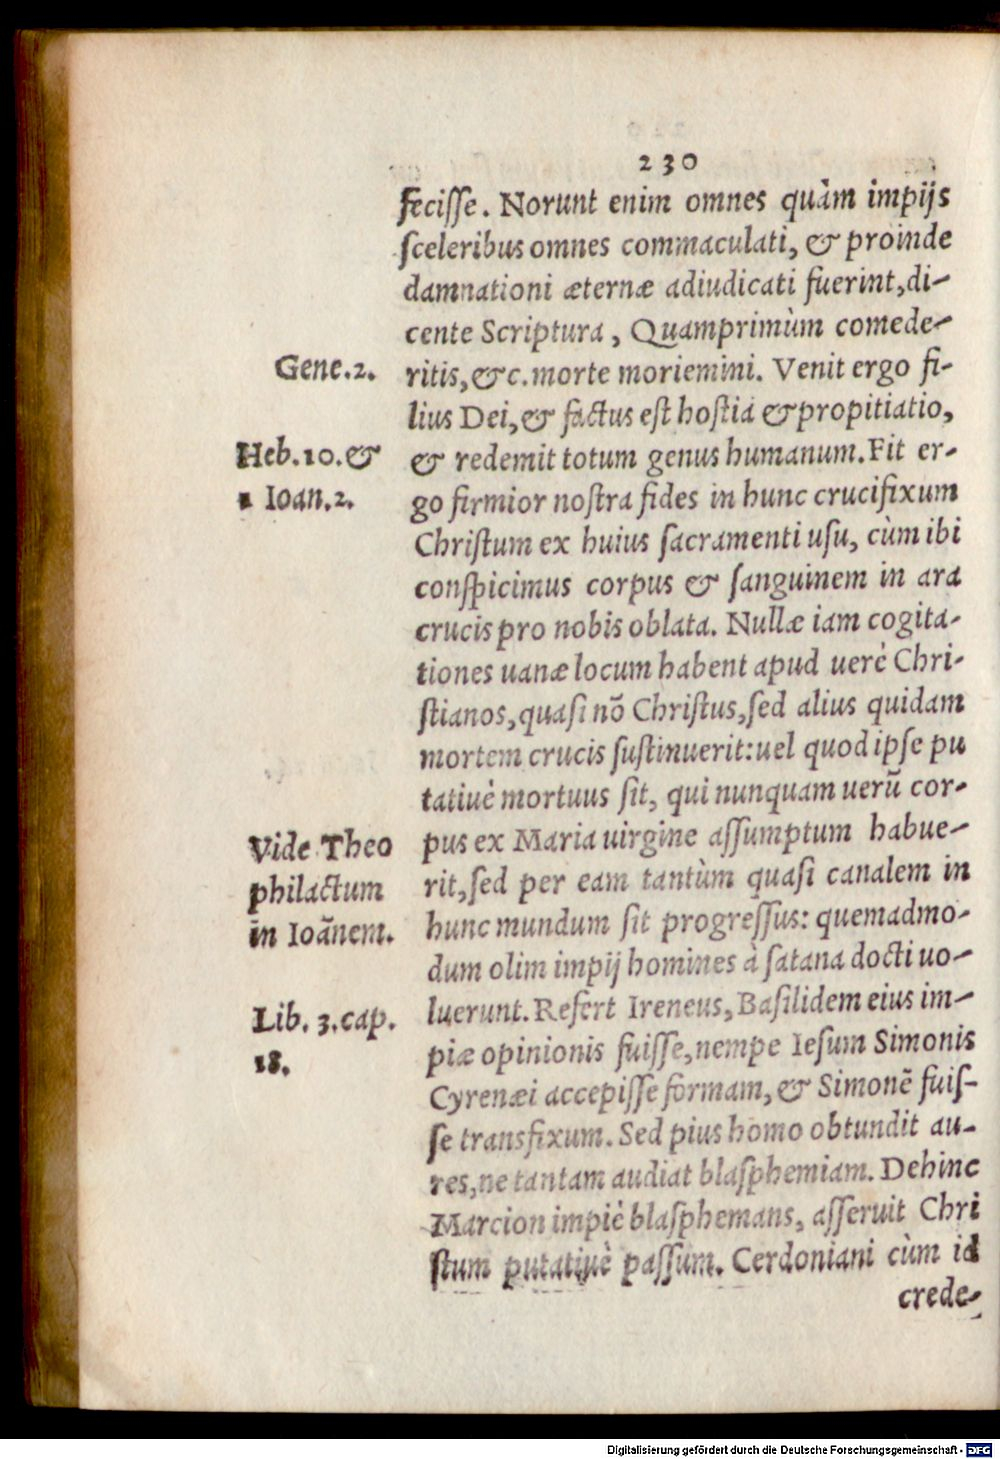 230
feciſſe. Norunt enim omnes quàm impijs
ſceleribus omnes commaculati, & proinde
damnationi æternæ adiudicati fuerint, di-
cente Scriptura, Quamprimùm comede-
Gene.2.
ritis, &c. morte moriemini. Venit ergo fi-
lius Dei, & factus eſt hoſtia & propitiatio,
Heb.10.&
& redemit totum genus humanum. Fit er-
1 Ioan.2.
go firmior noſtra fides in hunc crucifixum
Chriſtum ex huius ſacramenti uſu, cùm ibi
conſpicimus corpus & ſanguinem in ara
crucis pro nobis oblata. Nullæ iam cogita-
tiones uanæ locum habent apud uerè Chri-
ſtianos, quaſi nõ Chriſtus, ſed alius quidam
mortem crucis ſuſtinuerit: uel quod ipſe pu
tatiuè mortuus ſit, qui nunquam uerũ cor-
Vide Theo
pus ex Maria uirgine aſſumptum habue-
philactum
rit, ſed per eam tantùm quaſi canalem in
in Ioãnem.
hunc mundum ſit progreſſus: quemadmo-
dum olim impij homines à ſatana docti uo-
Lib. 3. cap.
luerunt. Refert Ireneus, Baſilidem eius im-
18.
piæ opinionis fuiſſe, nempe Ieſum Simonis
Cyrenæi accepiſſe formam, & Simonẽ fuiſ-
ſe transfixum. Sed pius homo obtundit au-
res, ne tantam audiat blaſphemiam. Dehinc
Marcion impiè blaſphemans, aſſeruit Chri
ſtum putatiuè paſſum. Cerdoniani cùm id
crede-
Digitalisierung gefördert durch die Deutsche Forschungsgemeinschaft - DFG